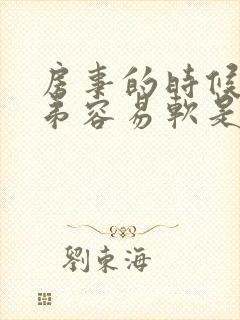 房事的时候
弟容易軟是
劉東海